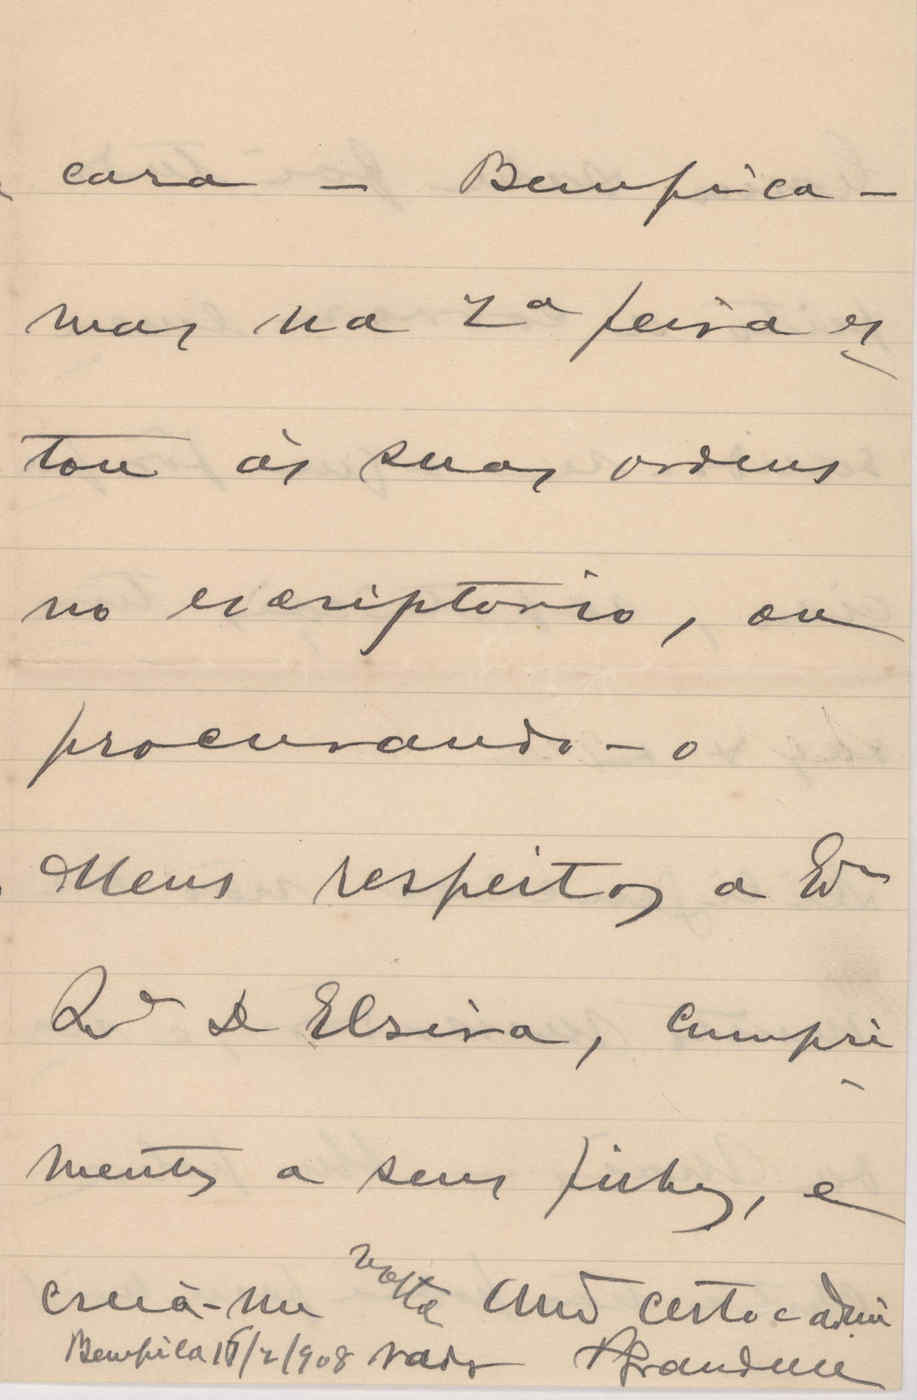 casa — Bemfica —
mas na 2ª feira es
tou às suas ordens
no escriptorio, ou
procurando-o
Meus respeitos a
D Elsira, cumpri-
mentos a seus filhos, e
creia-me Amº certo e admi
Bemfica 15/2/908 rador